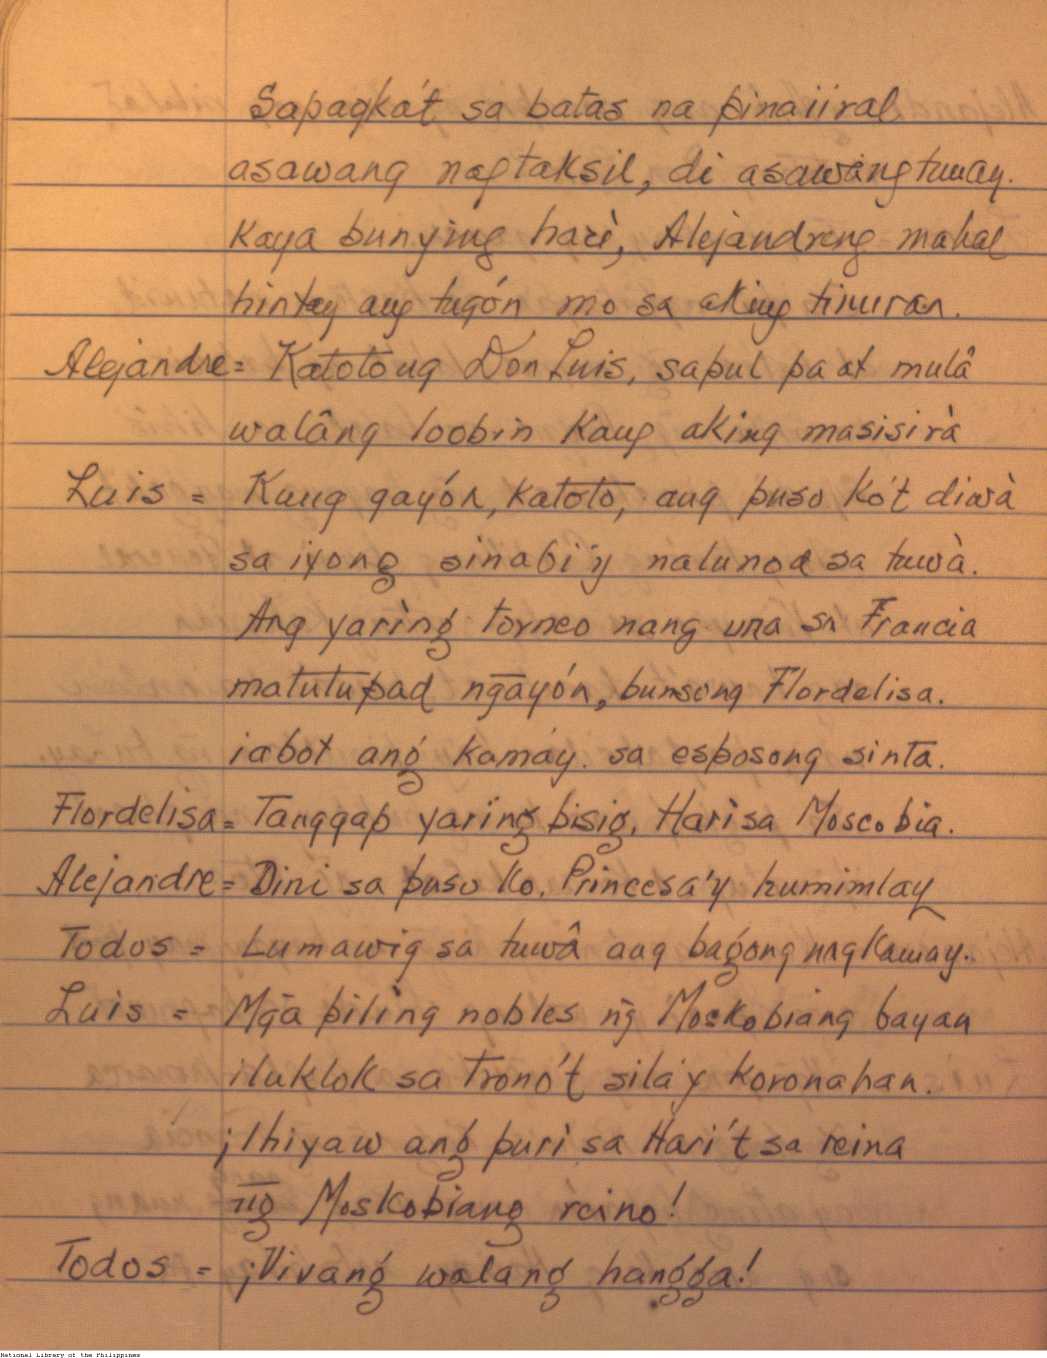 Sapagká't sa batas na pinaiiral
asawang nagtaksil, di asawàng tunay.
Kaya bunying harì, Alejandreng mahal
hintay ang tugón mo sa aking tinuran.
Alejandre = Katotong Don Luis, sapul pa at mulâ
walâng loobin kang aking masisirà
Luis = Kung gayón, katoto, ang puso ko't diwà
sa iyong sinabi'y nalunod sa tuwà.
Ang yarìng torneo nang una sa Francia
matutupad ng̃ayón, bunsong Flordelisa.
iabot ang kamáy sa esposong sinta.
Flordelisa = Tanggap yaring bisig, Hari sa Moscobia.
Alejandre = Dini sa puso ko, Princesa'y humimlay
Todos = Lumawig sa tuwâ ang bagong nagkamay.
Luis = Mg̃a pilìng nobles ng̃ Moskobiang bayan
iluklok sa trono't sila'y koronahan.
¡Ihiyaw ang puri sa Hari't sa reina
ng̃ Moskobiang reino!
Todos = ¡Vivang walang hangga!
National Library of the Philippines